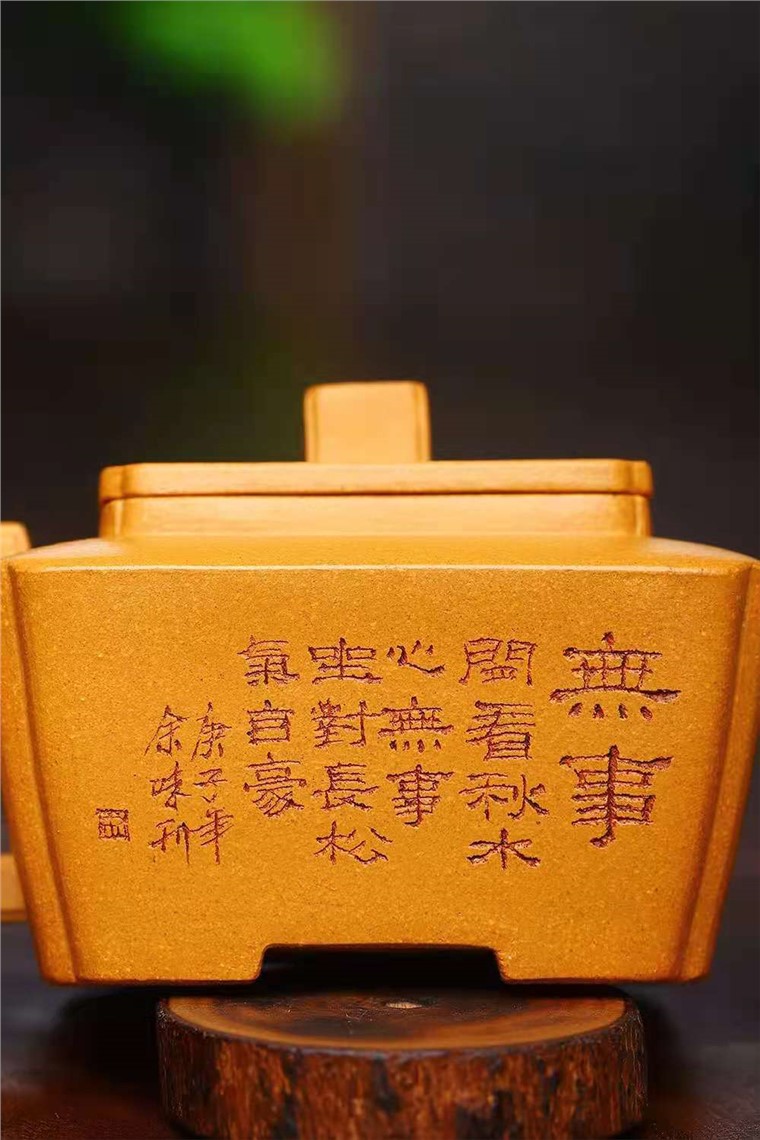 無事
閒看秋水
心無事
坐對長松
氣自豪
庚子年
余味刊